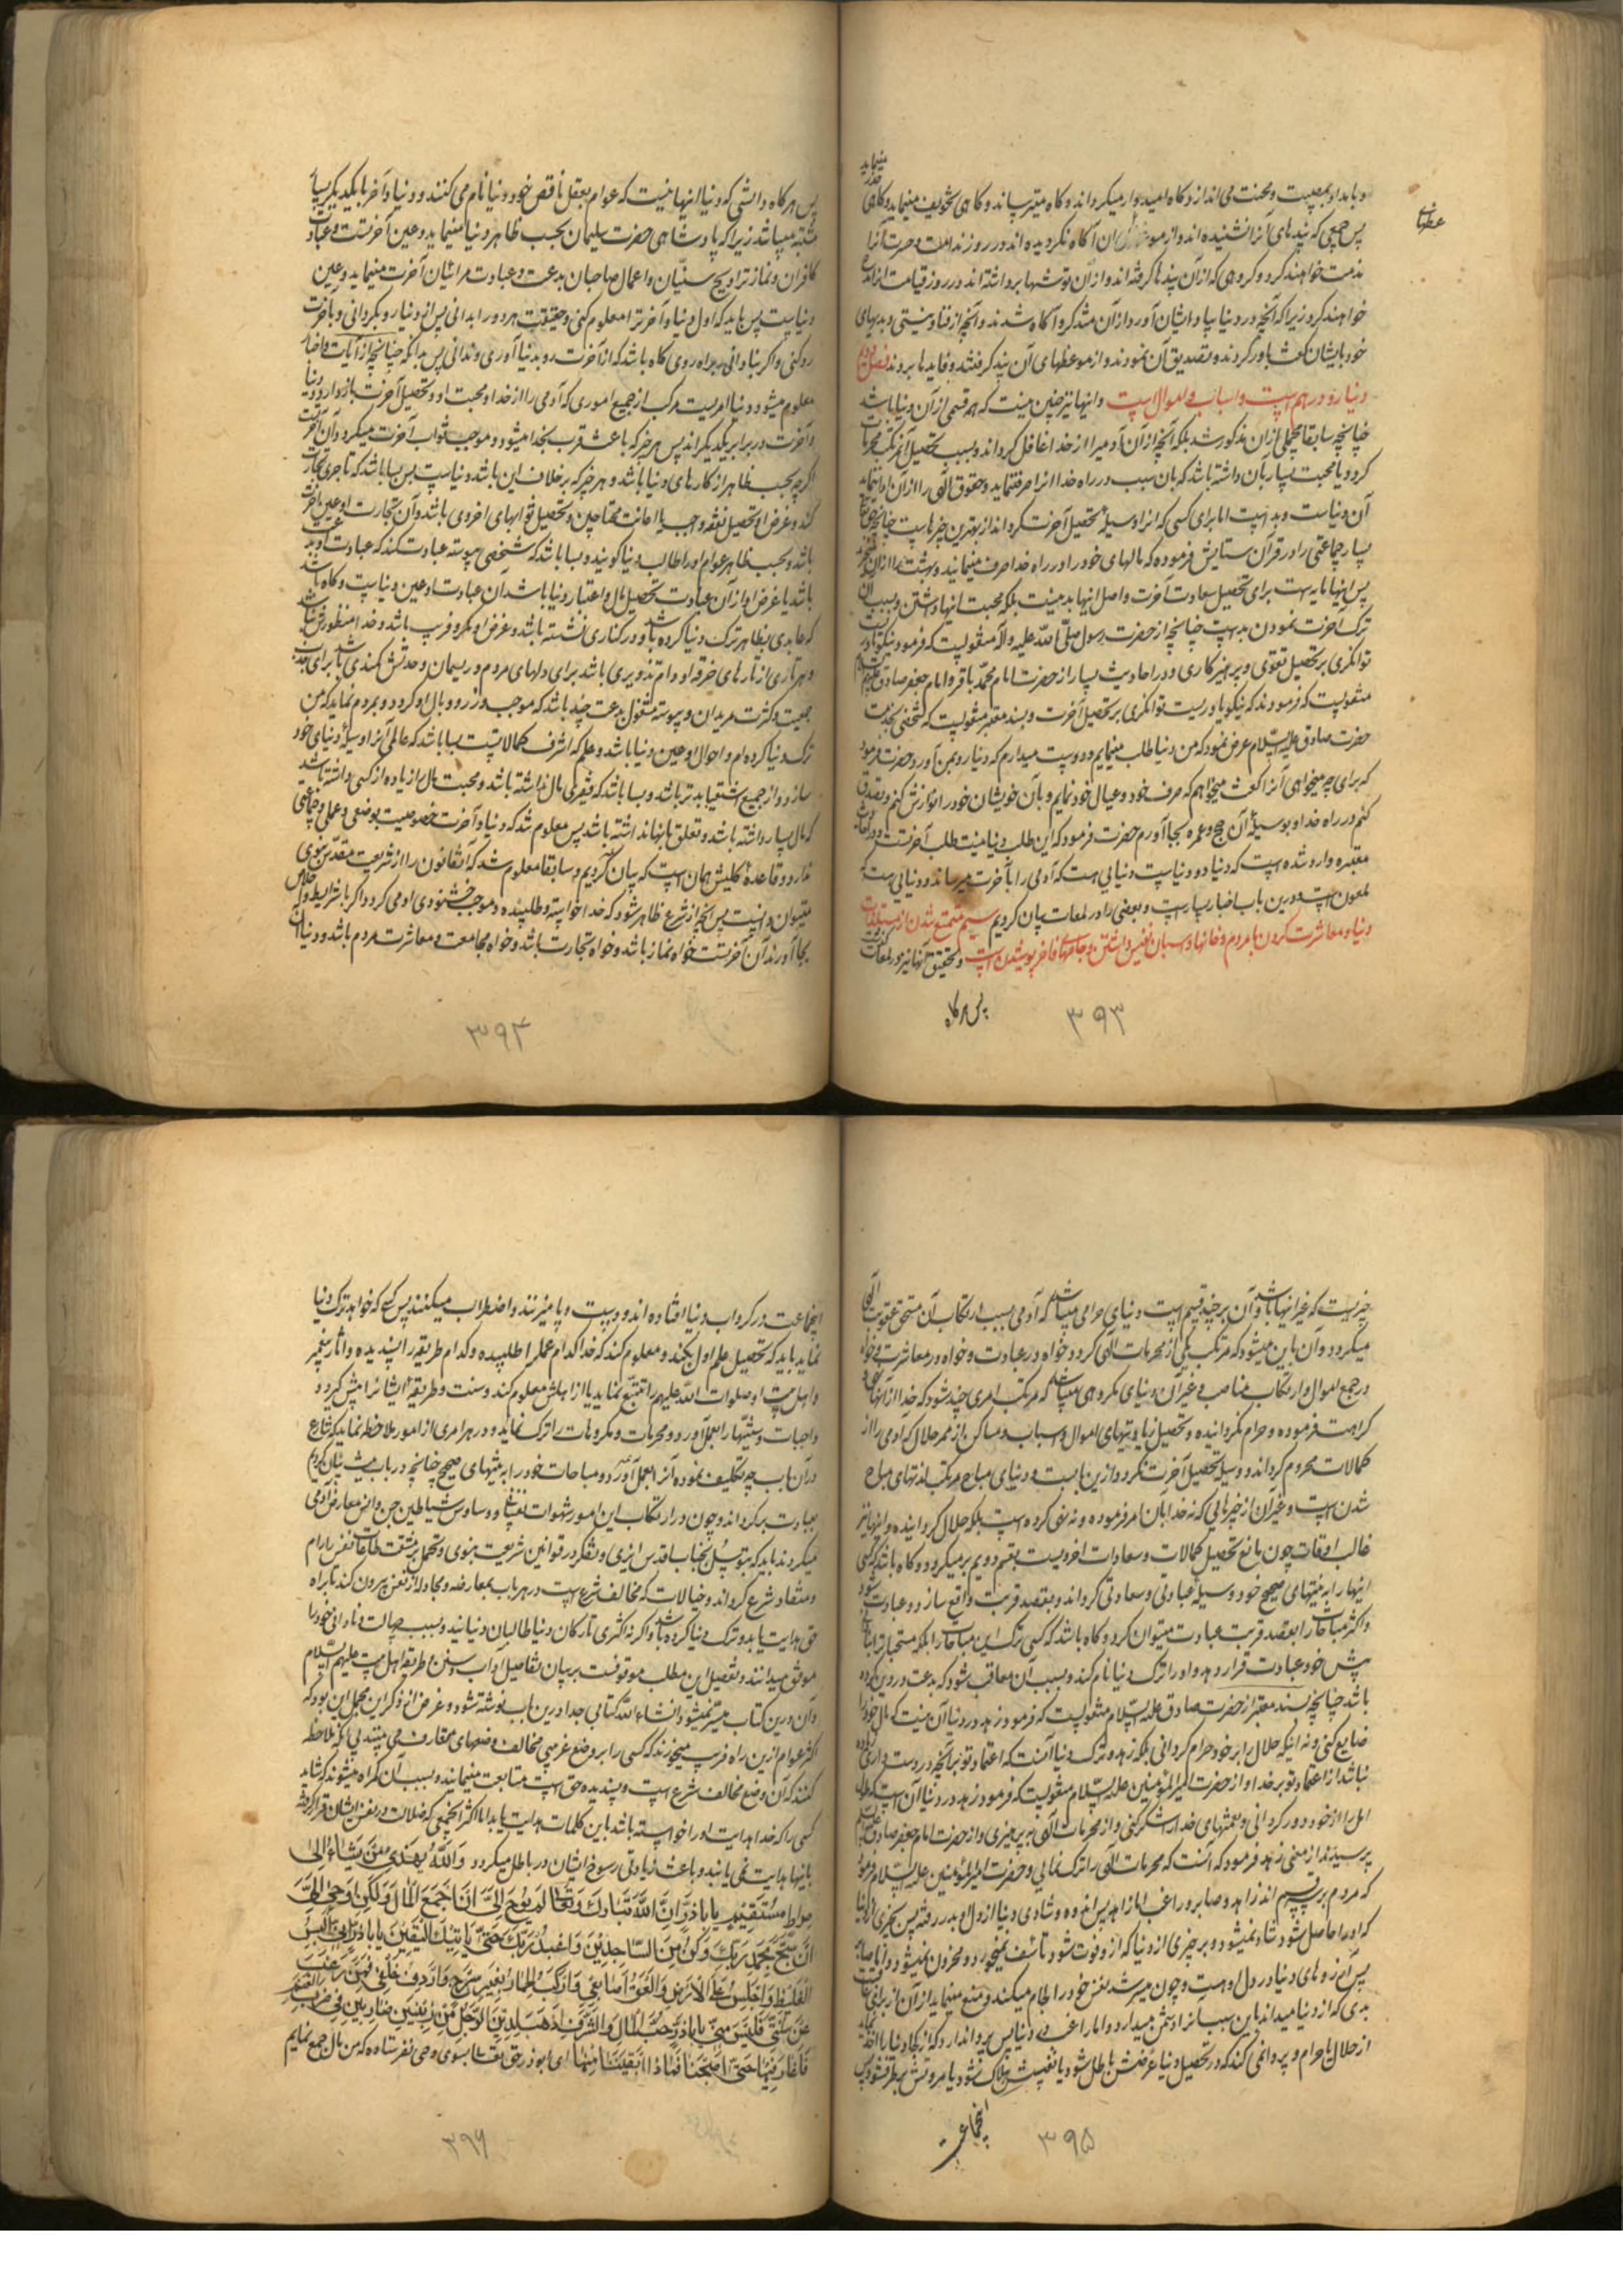 مینماید
و بامداد بمصیبت و محنت می اندازد و کاه امیدوار میکرداند و کاه میترساند و کاهی تخویف مینماید و کاهی
عظتها
پس جمعی که پندهای آنرا نشنیده اند و از آن آکاه نکردیده اند در روز ندامت و حسرت آنرا
مذمت خواهند کرد و کروهی که از آن پندها کرفته اند و از آن توشها برداشته اند در روز قیامت آنرا
خواهند کرد زیرا که آنچه در دنیا بیاد ایشان آورد از آن متذکر و آکاه شدند و آنچه از فنا و نیستی و بدیهای
خود بایشان کفت باور کردند و تصدیق آن نمودند و از موعظهای آن پند کرفتند و فایدها بردند فصل دویم
دنیا زر و درهم است و اسباب و اموال است و اینها نیز چنین نیست که همه قسمی از آن دنیا باشد
چنانچه سابقا مجملی از آن مذکور شد بلکه آنچه از آن آدمی را از خدا غافل کرداند و بسبب تحصیل آن مرتکب محرمات
کردد و یا محبت بسیار بآن داشته باشد که بآن سبب در راه خدا آنرا صرف ننماید و حقوق الهی را از آن ادا ننماید
آن دنیاست و بد است اما برای کسی که آنرا وسیله تحصیل آخرت کرداند از بهترین چیزهاست چنانچه حق تعالی
بسیار جماعتی را در قرآن ستایش فرموده که مالهای خود را در راه خدا صرف مینمایند و بهشت را از آن میخرند
پس اینها مایه است برای تحصیل سعادت آخرت و اصل اینها بد نیست بلکه محبت اینها داشتن و بسبب آن
ترک آخرت نمودن بد است چنانچه از حضرت رسول صلی الله علیه و آله منقولست که فرمود نیکو یاوریست
توانکری بر تحصیل تقوی و پرهیزکاری و در احادیث بسیار از حضرت امام محمد باقر و امام جعفر صادق علیهم السلام
منقولست که فرمودند که نیکو یاوریست توانکری بر تحصیل آخرت و بسند معتبر منقولست که شخصی بخدمت
حضرت صادق علیه السلام عرض نمود که من دنیا طلب مینمایم و دوست میدارم که دنیا رو بمن آورد حضرت فرمود
که برای چه میخواهی آنرا کفت میخواهم که صرف خود و عیال خود نمایم و بآن خویشان خود را نوازش کنم و تصدق
کنم در راه خدا و بوسیله آن حج و عمره بجا آورم حضرت فرمود که این طلب دنیا نیست طلب آخرتست و در احادیث
معتبره وارد شده است که دنیا دو دنیاست دنیایی هست که آدمی را بآخرت میرساند و دنیایی هست که
ملعون است و درین باب اخبار بسیار است و بعضی را در لمعات بیان کردیم سیم متمتع شدن از مستلذات
دنیا و معاشرت کردن با مردم و خانها و اسبان نفیس داشتن و جامهای فاخر پوشیدن است و تحقیق آنها نیز در لمعات
پس هرکاه
۳۹۳
پس هرکاه دانستی که دنیا اینها نیست که عوام بعقل ناقص خود دنیا نام می کنند و دنیا و آخرت با یکدیکر بسیار
مشتبه میباشد زیرا که پادشاهی حضرت سلیمان بحسب ظاهر دنیا مینماید و عین آخرتست و عبادت
کافران و نماز تراویح سنیان و اعمال صاحبان بدعت و عبادت مرائیان آخرت مینماید و عین
دنیاست پس باید که اول دنیا و آخرت را معلوم کنی و حقیقت هر دو را بدانی پس از دنیا رو بکردانی و بآخرت
رو کنی و اکر بنادانی براه روی کاه باشد که از آخرت رو بدنیا آوری و ندانی پس بدانکه چنانچه از آیات و اخبار
معلوم میشود دنیا امریست مرکب از جمیع اموری که آدمی را از خدا و محبت او و تحصیل آخرت باز دارد و دنیا
و آخرت در برابر یکدیکراند پس هرچیز که باعث قرب بخدا میشود و موجب ثواب آخرت میکردد آن آخرتست
اکرچه بحسب ظاهر از کارهای دنیا باشد و هر چیز که برخلاف این باشد دنیاست پس بسا باشد که تاجری تجارت
کند و غرض او تحصیل نفقه واجب یا اعانت محتاجین و تحصیل ثوابهای اخروی باشد و آن تجارت او عین آخرت
باشد و بحسب ظاهر عوام او را طالب دنیا کویند و بسا باشد که شخصی پیوسته عبادت کند که عبادت او بدعت
باشد یا غرض او از آن عبادت تحصیل مال و اعتبار دنیا باشد آن عبادت او عین دنیاست و کاه باشد
که عابدی بظاهر ترک دنیا کرده باشد و در کناری نشسته باشد و غرض او مکر و فریب باشد و خدا منظورش نباشد
و هر تاری از تارهای خرقه او دام تزویری باشد برای دلهای مردم و ریسمان وحدتش کمندی باشد برای جذب
جمعیت و کثرت مریدان و پیوسته مشغول بدعت چند باشد که موجب وزر و وبال او کردد و بمردم نماید که من
ترک دنیا کرده ام و احوال او عین دنیا باشد و علم که اشرف کمالاتست بسا باشد که عالمی آنرا وسیله دنیای خود
سازد و از جمیع اشقیا بدتر باشد و بسا باشد که فقیری مال نداشته باشد و محبت مال زیاده از کسی داشته باشد
که مال بسیار داشته باشد و تعلق بآنها نداشته باشد پس معلوم شد که دنیا و آخرت خصوصیت بوضعی و عملی و جماعتی
ندارد و قاعده کلیش همان است که بیان کردیم و سابقا معلوم شد که آن قانون را از شریعت مقدس نبوی
میتوان دانست پس آنچه از شرع ظاهر شود که خدا خواسته و طلبیده و موجب خشنودی او می کردد اکر با شرایط و اخلاص
بجا آورند آن آخرتست خواه نماز باشد و خواه تجارت باشد و خواه مجامعت و معاشرت مردم باشد و دنیا آن
۳۹۴
چیزیست که غیر اینها باشد و آن بر چند قسم است دنیای حرامی میباشد که آدمی بسبب ارتکاب آن مستحق عقوبت الهی
میکردد و آن باین میشود که مرتکب یکی از محرمات الهی کردد خواه در عبادت و خواه در معاشرت و خواه
در جمع اموال و ارتکاب مناصب و غیر آن و دنیای مکروهی میباشد که مرتکب امری چند شود که خدا از آنها نهی
کراهت فرموده و حرام نکردانیده و تحصیل زیادتیهای اموال و اسباب و مساکن از ممر حلال که آدمی را از
کمالات محروم کرداند و وسیله تحصیل آخرت نکردد ازین بابست و دنیای مباح مرتکب لذتهای مباح
شدن است و غیر آن از چیزهایی که نه خدا بآن امر فرموده و نه نهی کرده است بلکه حلال کردانیده و اینها نیز
غالب اوقات چون مانع تحصیل کمالات و سعادات اخرویست بقسم دویم برمیکردد و کاه باشد که کسی
اینها را به نیتهای صحیح خود وسیله عبادتی و سعادتی کرداند و بقصد قربت واقع سازد و عبادت شود
و اکثر مباحات را بقصد قربت عبادت میتوان کرد و کاه باشد که کسی ترک این مباحات را بلکه مستحبات را
پیش خود عبادت قرار دهد و او را ترک دنیا نام کند و بسبب آن معاقب شود که بدعت در دین کرده
باشد چنانچه بسند معتبر از حضرت صادق علیه السلام منقولست که فرمود زهد در دنیا آن نیست که مال خود را
ضایع کنی و نه اینکه حلال را بر خود حرام کردانی بلکه زهد و ترک دنیا آنست که اعتماد تو بر آنچه در دست داری زیاده
نباشد از اعتماد تو بر خدا و از حضرت امیرالمؤمنین علیه السلام منقولست که فرمود زهد در دنیا آن است که طول
امل را از خود دور کردانی و نعمتهای خدا را شکر کنی و از محرمات الهی بپرهیزی و از حضرت امام جعفر صادق علیه السلام
پرسیدند از معنی زهد فرمود که آنست که محرمات الهی را ترک نمائی و حضرت امیرالمؤمنین علیه السلام فرمود
که مردم بر سه قسم اند زاهد و صابر و راغب اما زاهد پس اندوه و شادی دنیا از دل او بدر رفته پس بچیزی از دنیا
که او را حاصل شود شاد نمیشود و بر چیزی از دنیا که از او فوت شود تأسف نمیخورد و محزون نمیشود و اما صابر
پس آرزوهای دنیا در دل او هست و چون میسر شد نفس خود را لجام میکند و منع مینماید از آن از برای عاقبت
بدی که از دنیا میداند باین سبب آنرا دشمن میدارد و اما راغب دنیا پس پروا ندارد که از کجا دنیا را بیابد
از حلال یا حرام و پروا نمی کند که در تحصیل دنیا عرضش باطل شود یا نفسش هلاک شود یا مروتش برطرف شود پس
اینجماعت
۳۹۵
اینجماعت در کرداب دنیا افتاده اند و دست و پا میزنند و اضطراب میکنند پس کسی که خواهد ترک دنیا
نماید باید که تحصیل علم اول بکند و معلوم کند که خدا کدام عمل را طلبیده و کدام طریقه را پسندیده و آثار پیغمبر
و اهل بیت او صلوات الله علیهم را تتبع نماید یا از اهلش معلوم کند و سنت و طریقه ایشانرا پیش کیرد و
واجبات و سنتها را بعمل آورد و محرمات و مکروهات را ترک نماید و در هر امری از امور ملاحظه نماید که شارع
در آن باب چه تکلیف نموده آنرا بعمل آورد و مباحات خود را به نیتهای صحیح چنانچه در باب نیت بیان کردیم
بعبادت برکرداند و چون در ارتکاب این امور شهوات نفسانی و وساوس شیاطین جن و انس معارض آدمی
میکردند باید که بتوسل بجناب اقدس ایزدی و تفکر در قوانین شریعت نبوی و تحمل مشقت طاعات نفس را رام
و منقاد شرع کرداند و خیالات که مخالف شرع است در هر باب بمعارضه و مجادله از نفس بیرون کند تا براه
حق هدایت یابد و ترک دنیا کرده باشد و اکر نه اکثری تارکان دنیا طالبان دنیااند و بسبب جهالت و نادانی خود را
موثق میدانند و تفصیل این مطلب موقوفست بر بیان تفاصیل آداب و سنن و طریقه اهل بیت علیهم السلام
و آن درین کتاب میسر نمیشود انشاءالله کتابی جدا درین باب نوشته شود و غرض از ذکر این مجمل این بود که
اکثر عوام ازین راه فریب میخورند که کسی را بر وضع غریبی مخالف وضعهای متعارف می بینند بی آنکه ملاحظه
کنند که آن وضع مخالف شرع است و پسندیده حق است متابعت مینمایند و بسبب آن کمراه میشوند که شاید
کسی را که خدا هدایت او را خواسته باشد باین کلمات هدایت یابد اما اکثر آنجمعی که ضلالت در نفس ایشان قرار کرفته
باینها هدایت نمی یابند و باعث زیادتی رسوخ ایشان در باطل میکردد وَاللَّهُ يَهْدِي مَنْ يَشَاءُ إِلَى
صِرَاطٍ مُسْتَقِيمٍ يَا بَاذَرٍّ إِنَّ اللَّهَ تَبَارَكَ وَتَعَالَى لَمْ يُوحِ إِلَيَّ أَنْ أَجْمَعَ الْمَالَ وَلَكِنْ أَوْحَى إِلَيَّ
أَنْ سَبِّحْ بِحَمْدِ رَبِّكَ وَكُنْ مِنَ السَّاجِدِينَ وَاعْبُدْ رَبَّكَ حَتَّى يَأْتِيَكَ الْيَقِينُ يَا بَاذَرٍّ إِنِّي أَلْبَسُ
الْغَلِيظَ وَأَجْلِسُ عَلَى الْأَرْضِ وَأَلْعَقُ أَصَابِعِي وَأَرْكَبُ الْحِمَارَ بِغَيْرِ سَرْجٍ وَأُرْدِفُ خَلْفِي فَمَنْ رَغِبَ
عَنْ سُنَّتِي فَلَيْسَ مِنِّي يَا بَاذَرٍّ حُبُّ الْمَالِ وَالشَّرَفِ أَذْهَبُ لِدِينِ الرَّجُلِ مِنْ ذِئْبَيْنِ ضَارِيَيْنِ فِي زَرِيبَةِ الْغَنَمِ
فَأَغَارَا فِيهَا حَتَّى أَصْبَحَا فَمَاذَا أَبْقَيَا مِنْهَا ای ابوذر حق تعالی بسوی من وحی نفرستاده که من مال جمع نمایم
۳۹۶